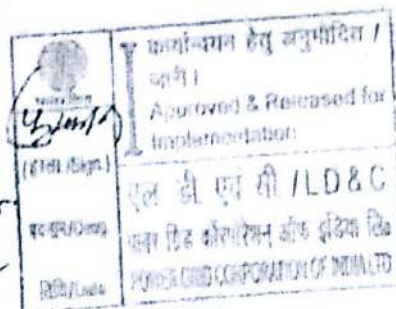 कार्यान्वयन हेतु अनुमोदित /
जारी।
Approved & Released for
Implementation
(हस्ता./Sign.)
एल डी एवं सी / LD & C
पदनाम/Desig
पावर ग्रिड कॉरपोरेशन ऑफ इंडिया लि०
POWER GRID CORPORATION OF INDIA LTD
तिथि/Date